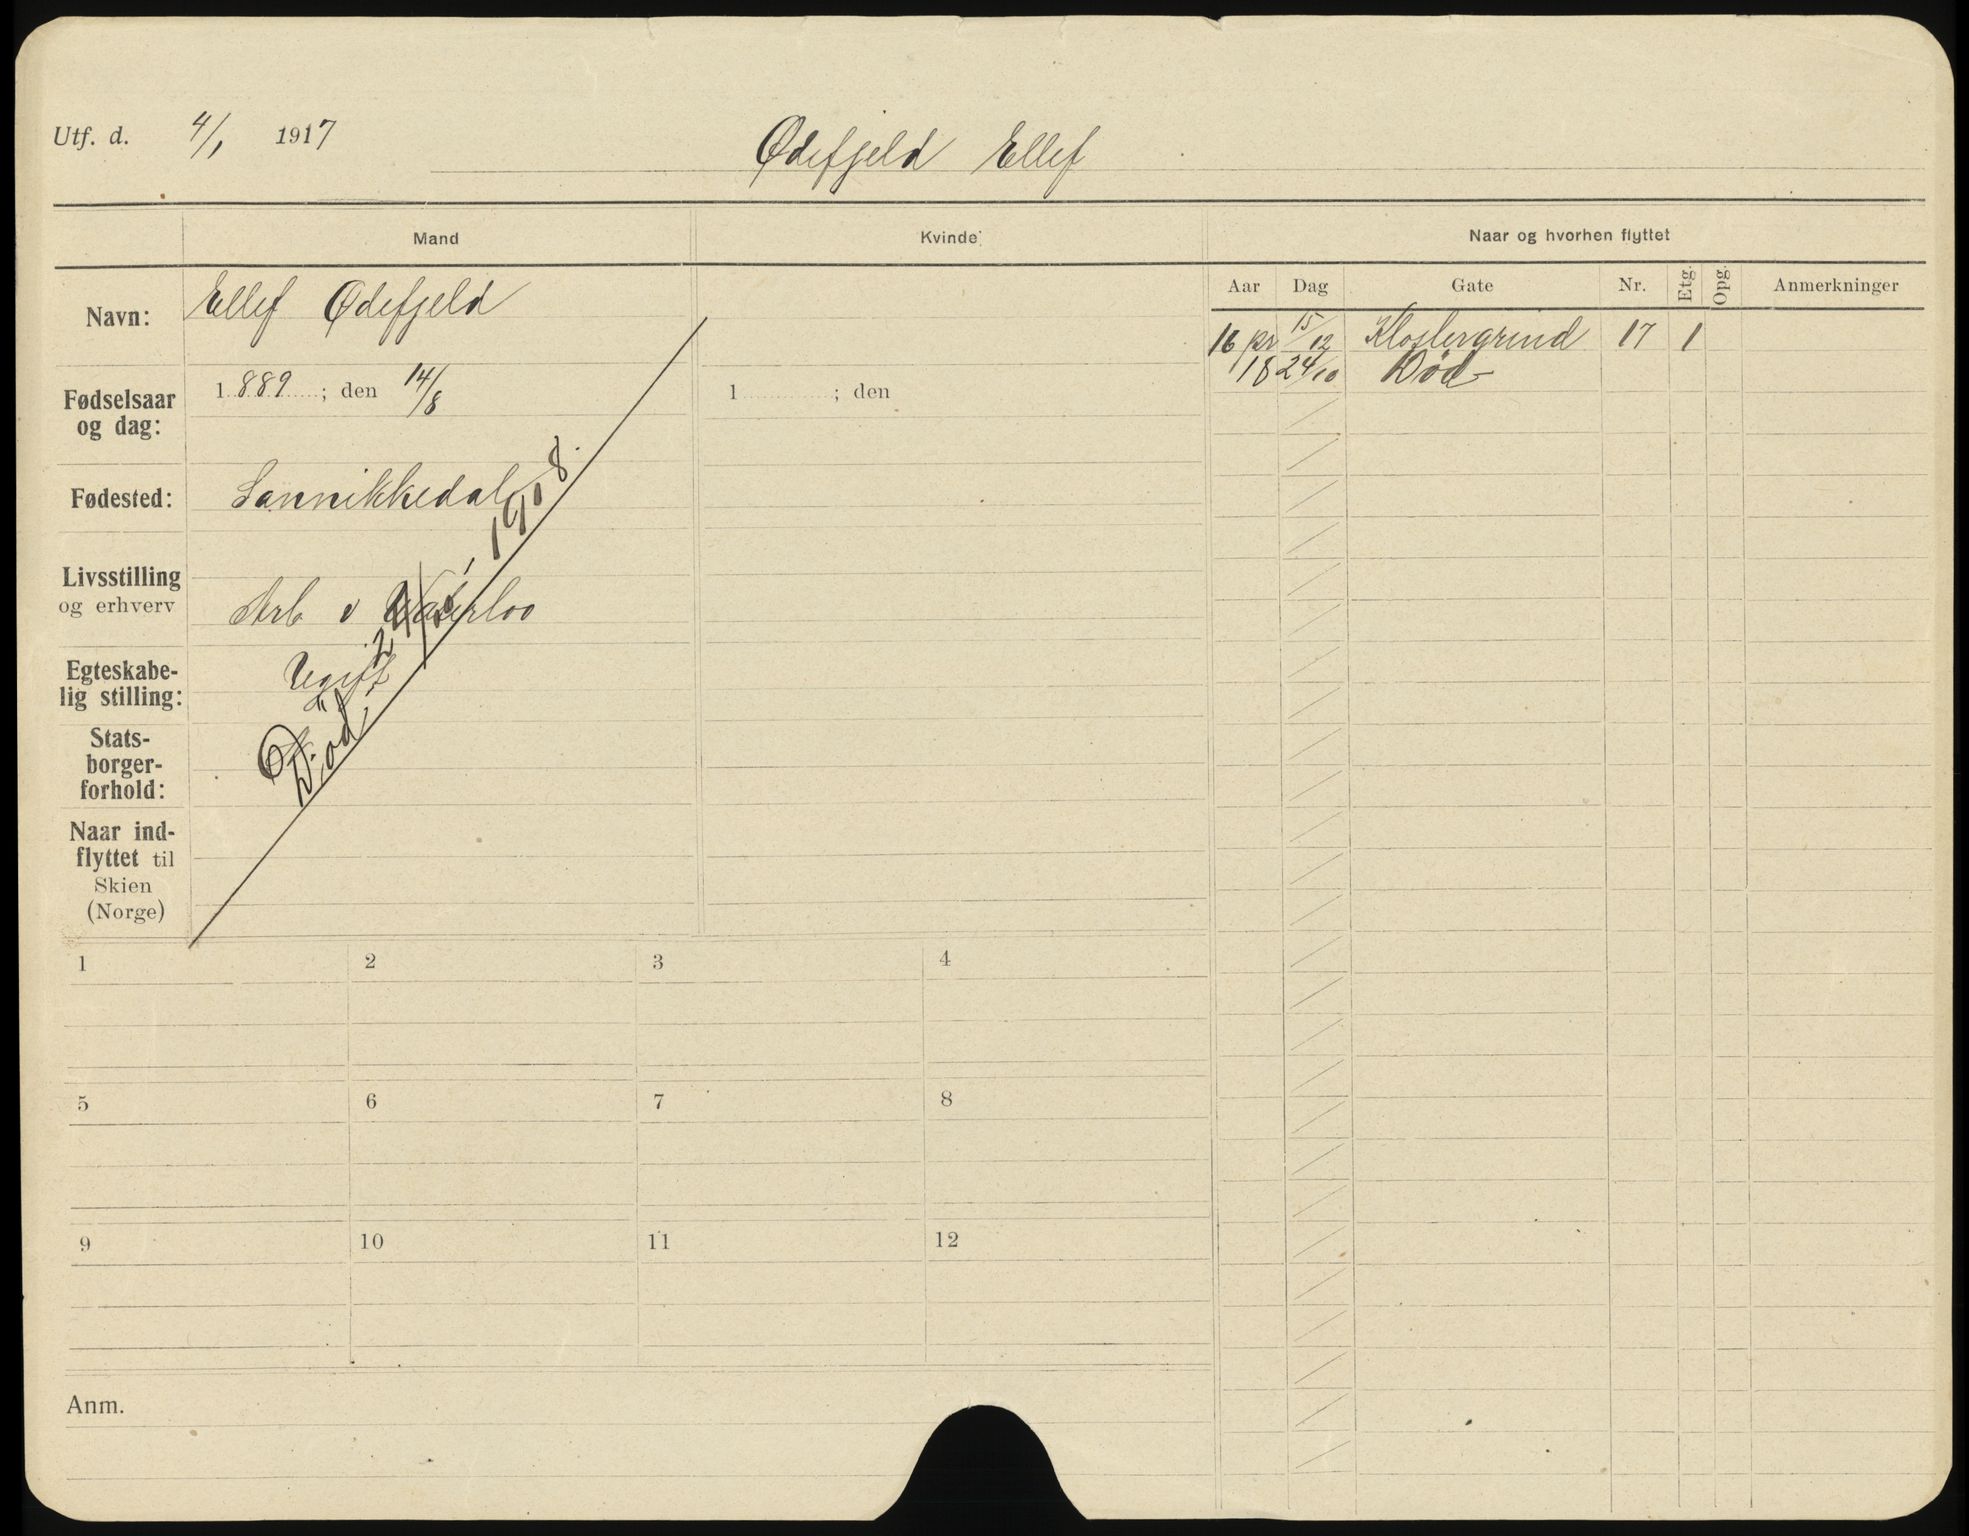 Utf. d. 4/1 1917
Ødefjeld Ellef
Mand
Kvinde
Naar og hvorhen flyttet
Aar Dag Gate Nr. Etg. Opg. Anmerkninger
Navn: Ellef Ødefjeld
16 pr 15/12 Klostergrind 17 1
18 24/10 Død
Fødselsaar og dag: 1889; den 14/8
1 ; den
Fødested: Sannikkedal
Livsstilling og erhverv Arb v Waterloo
Egteskabe-
lig stilling: Ugift
Død 24/10 1918.
Stats-
borger-
forhold:
Naar ind-
flyttet til
Skien
(Norge)
1 2 3 4
5 6 7 8
9 10 11 12
Anm.